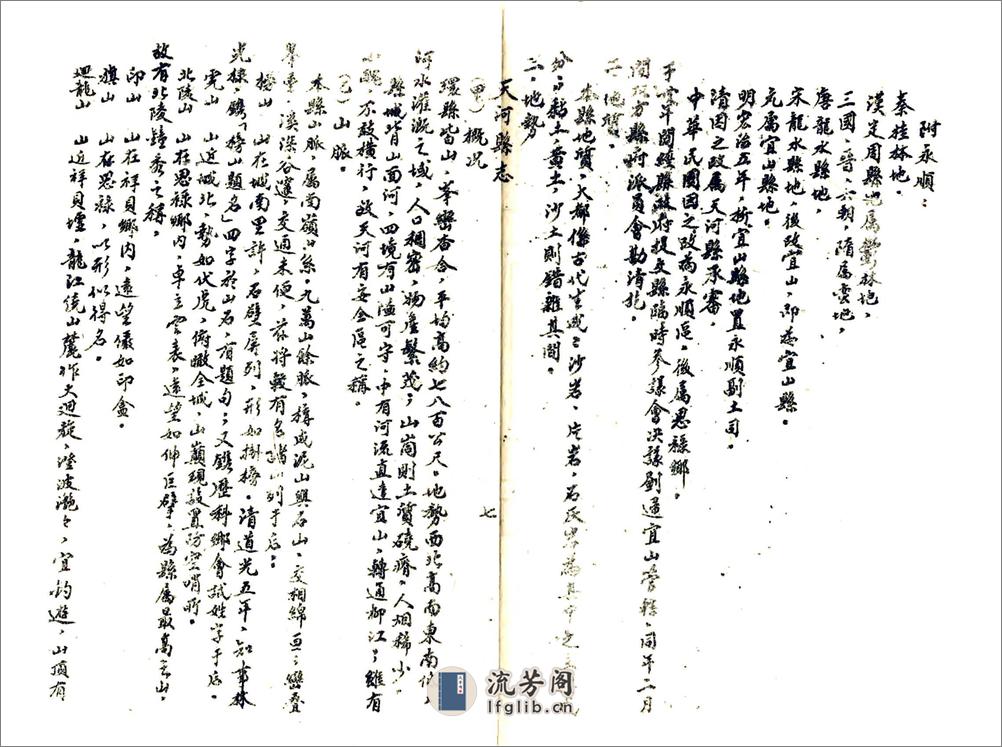 附永順：
秦桂林地。
漢定周縣地屬鬱林地，
三國、晉、六朝，隋屬蛮地，
唐龍水縣地，
宋龍水縣地，後改宜山，即為宜山縣。
元屬宜山縣地。
明宏治五年，析宜山縣地置永順副土司。
清因之改屬天河縣承審，
中華民國因之改為永順區。後屬思祿鄉。
年間經縣政府提交縣臨時參議會決議劃還宜山管轄，同年二月
間双方縣府派員會勘清挖。
二、地質
本縣地質，大都係古代生成之沙岩、片岩、石灰岩為其中之主
份；黏土、黃土、沙土則錯雜其間。
三、地勢
天河縣志
七
(甲) 概况
環縣皆山，峯巒杳合，平均高約七八百公尺。地勢西北高南東南低，
河水灌溉之域，人口稠密，物產繁茂；山崗則土質磽瘠，人烟稀少。
縣城背山面河，四境有山隘可守，中有河流直達宜山，轉通柳江；雖有
不敢橫行，故天河有安全區之稱。
(乙) 山脈。
本縣山脈，屬南嶺山系，九萬山餘脈，構成泥山與石山，交相綿亘；巒叠
峯重，溪深谷邃，交通未便，茲將較有名諸山列于后：
榜山 山在城南里許，石壁屏列，形如掛榜。清道光五年，知事林
光棣，鐫「榜山題名」四字於山石，有題句；又鐫歷科鄉會試姓字于后。
虎山 山近城北，勢如伏虎，俯瞰全城，山巔現設置防空哨所。
北陵山 山在思祿鄉內，卓立雲表，遠望如伸巨擘，為縣屬最高之山，
故有北陵鐘秀之稱。
印山 山在祥貝鄉內，遠望儼如印盒。
旗山 山在思祿，以形似得名。
迴龍山 山近祥貝墟，龍江繞山麓作大迴旋，澄波灔灔，宜釣遊，山頂有
流芳阁
lfglib.cn